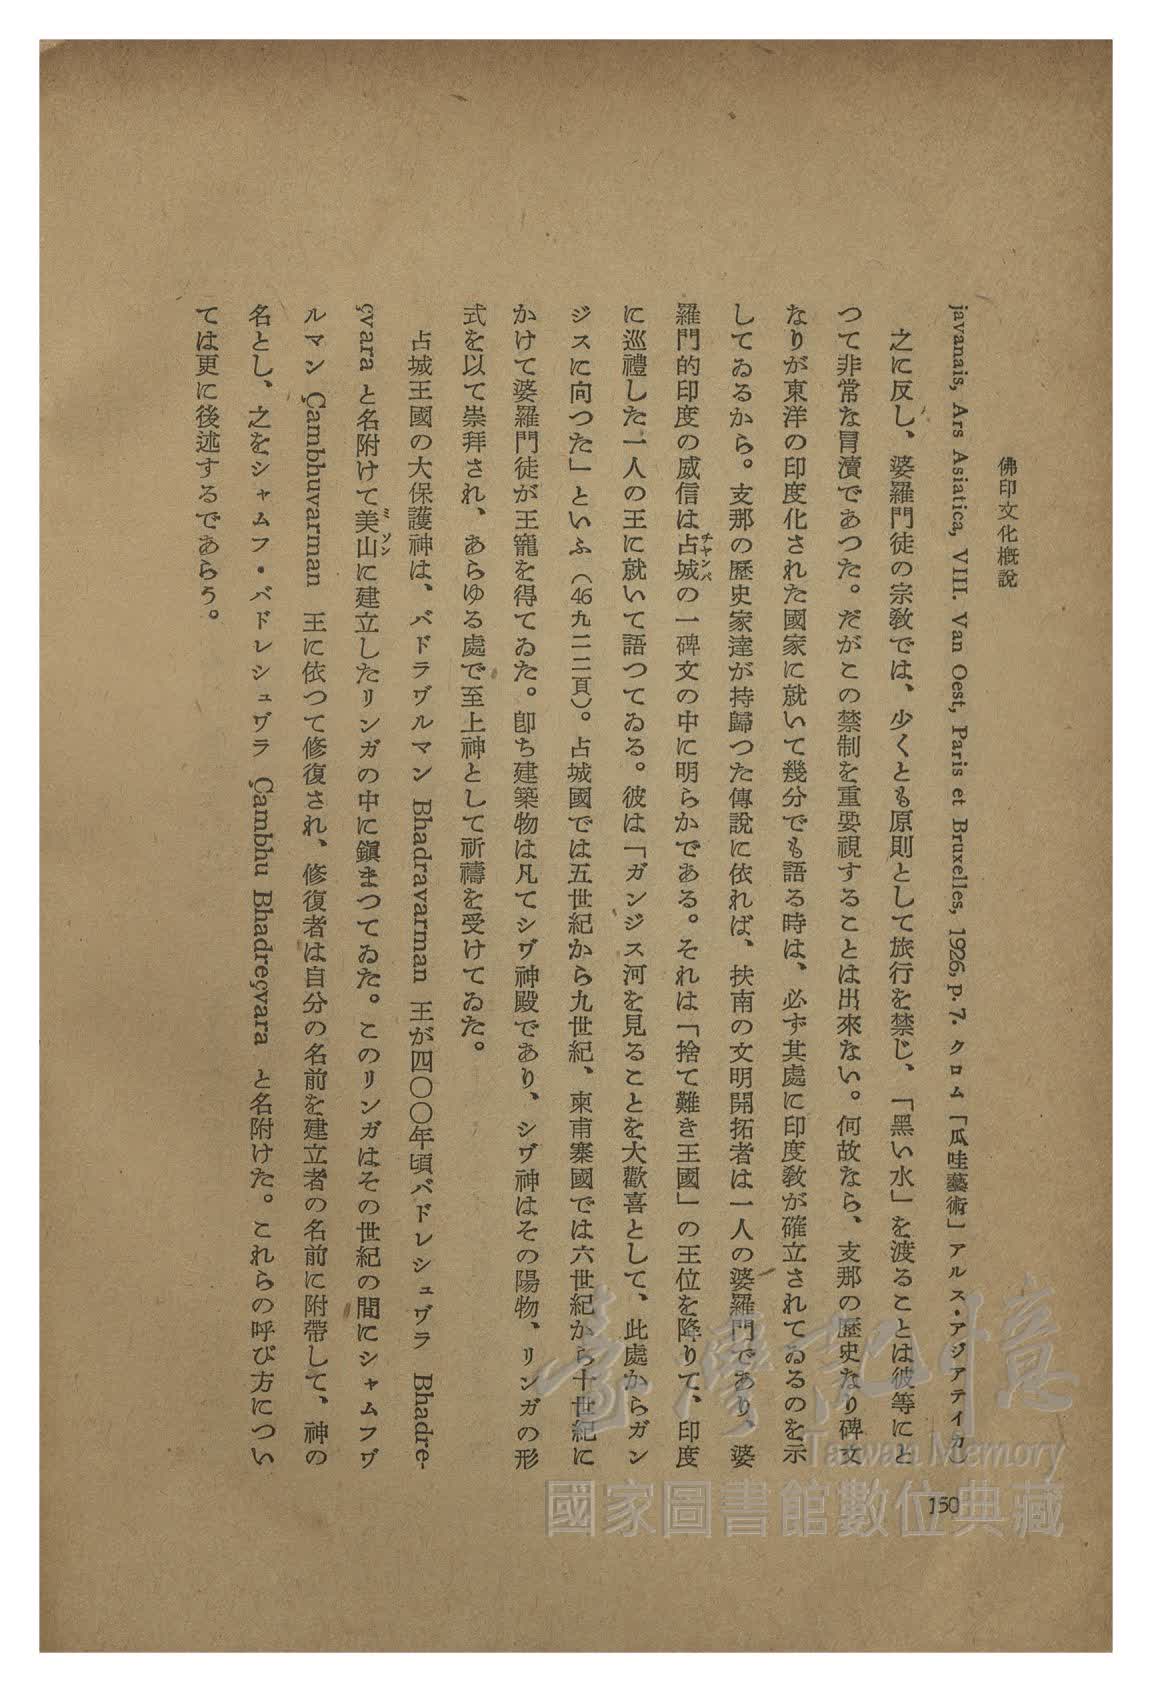 佛印文化概說
javanais, Ars Asiatica, VIII. Van Oest, Paris et Bruxelles, 1926, p. 7. クロム「瓜哇藝術」アルス・アジアテイカ」
之に反し、婆羅門徒の宗教では、少くとも原則として旅行を禁じ、「黑い水」を渡ることは彼等にと
つて非常な冒瀆であつた。だがこの禁制を重要視することは出來ない。何故なら、支那の歷史なり碑文
なりが東洋の印度化された國家に就いて幾分でも語る時は、必ず其處に印度教が確立されてゐるのを示
してゐるから。支那の歷史家達が持歸つた傳說に依れば、扶南の文明開拓者は一人の婆羅門であり、婆
羅門的印度の威信は占城チヤンパの一碑文の中に明らかである。それは「捨て難き王國」の王位を降りて、印度
に巡禮した一人の王に就いて語つてゐる。彼は「ガンジス河を見ることを大歡喜として、此處からガン
ジスに向つた」といふ（46九二二頁）。占城國では五世紀から九世紀、柬甫寨國では六世紀から十世紀に
かけて婆羅門徒が王寵を得てゐた。卽ち建築物は凡てシヴ神殿であり、シヴ神はその陽物、リンガの形
式を以て崇拜され、あらゆる處で至上神として祈禱を受けてゐた。
占城王國の大保護神は、バドラヴルマン Bhadravarman 王が四〇〇年頃バドレシュヴラ Bhadre-
çvara と名附けて美山ミソンに建立したリンガの中に鎭まつてゐた。このリンガはその世紀の間にシャムフヴ
ルマン Çambhuvarman 王に依つて修復され、修復者は自分の名前を建立者の名前に附帶して、神の
名とし、之をシャムフ・バドレシュヴラ Çambhu Bhadreçvara と名附けた。これらの呼び方につい
ては更に後述するであらう。
150
臺灣記憶
Taiwan Memory
國家圖書館數位典藏